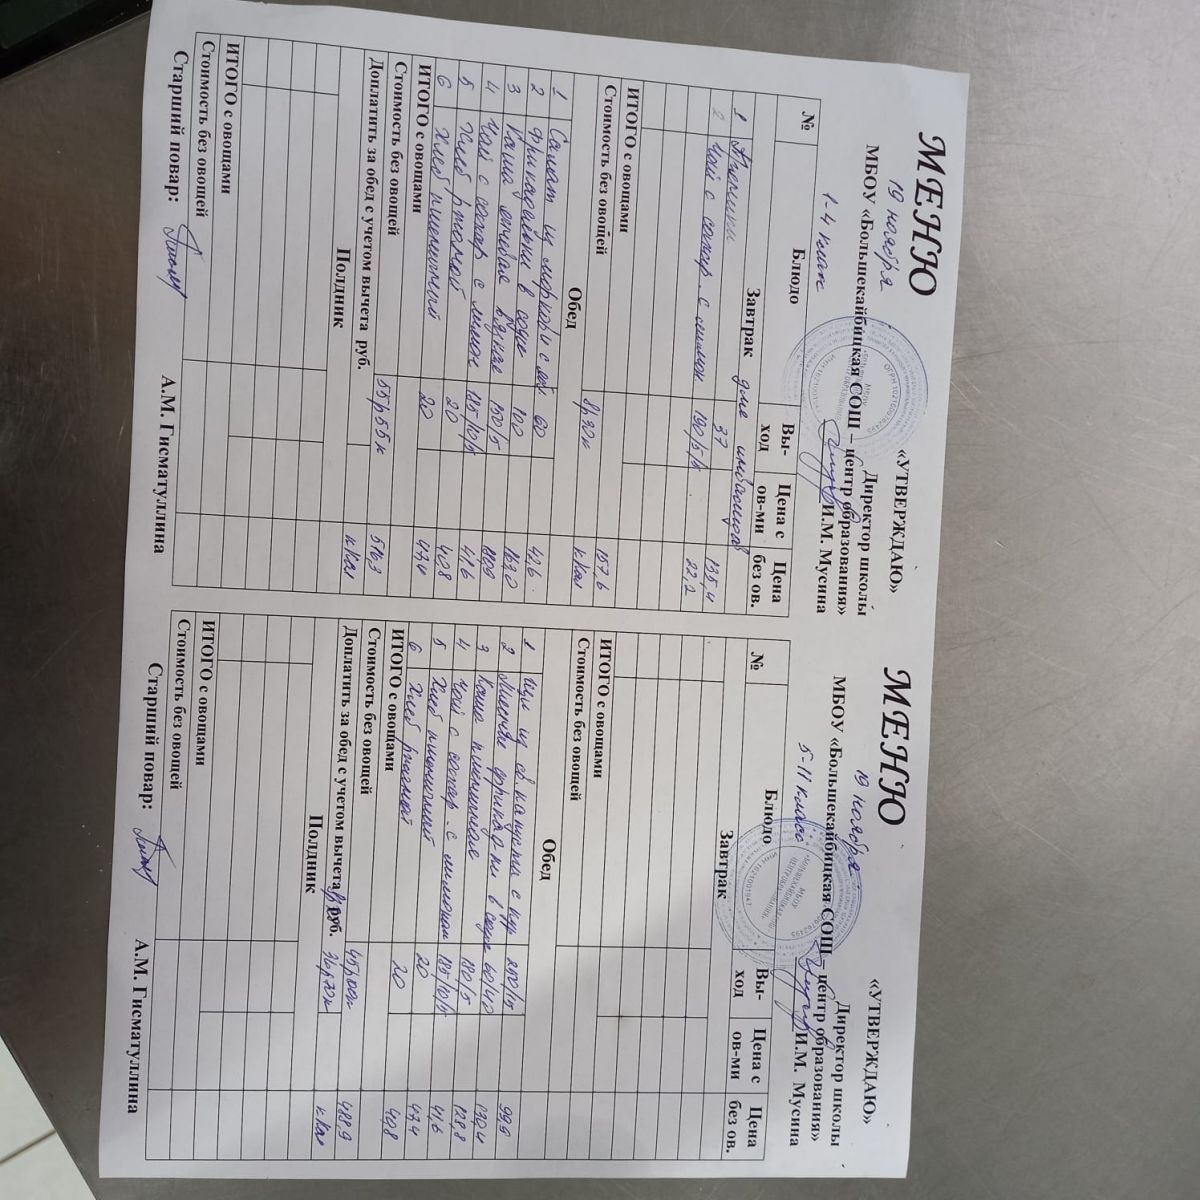 «УТВЕРЖДАЮ»
Директор школы
МБОУ «Большекайбицкая СОШ – центр образования»
И.М. Мусина
МЕНЮ
19 ноября
1-4 класс
№ Блюдо Вы-ход Цена с ов-ми Цена без ов.
Завтрак для
1 37 135,4
2 Чай с сахар. с лимон 190/5/5 22,2
ИТОГО с овощами 157,6
Стоимость без овощей 8р30к кКал
Обед
1 Салат из моркови с 60 42,6
2 Фрикадельки в соусе 100 163,0
3 Каша вязкая 150/5
4 Чай с сахар с лимон 185/10/5 41,6
5 Хлеб ржаной 20 40,8
6 Хлеб пшеничный 20 47,4
ИТОГО с овощами
Стоимость без овощей
Доплатить за обед с учетом вычета руб. 55р55к 516,3
Полдник кКал
ИТОГО с овощами
Стоимость без овощей
Старший повар: А.М. Гисматуллина
«УТВЕРЖДАЮ»
Директор школы
МБОУ «Большекайбицкая СОШ – центр образования»
И.М. Мусина
МЕНЮ
19 ноября
5-11 класс
№ Блюдо Вы-ход Цена с ов-ми Цена без ов.
Завтрак
ИТОГО с овощами
Стоимость без овощей
Обед
1 Щи из св капусты с
2 в соусе 60/40
3 Каша 180/5 128,8
4 Чай с сахар. с лимоном 185/10/5 41,6
5 Хлеб пшеничный 20 47,4
6 Хлеб ржаной 20 40,8
ИТОГО с овощами
Стоимость без овощей 45р00к
Доплатить за обед с учетом вычета руб. 36р70к 488,9
Полдник кКал
ИТОГО с овощами
Стоимость без овощей
Старший повар: А.М. Гисматуллина